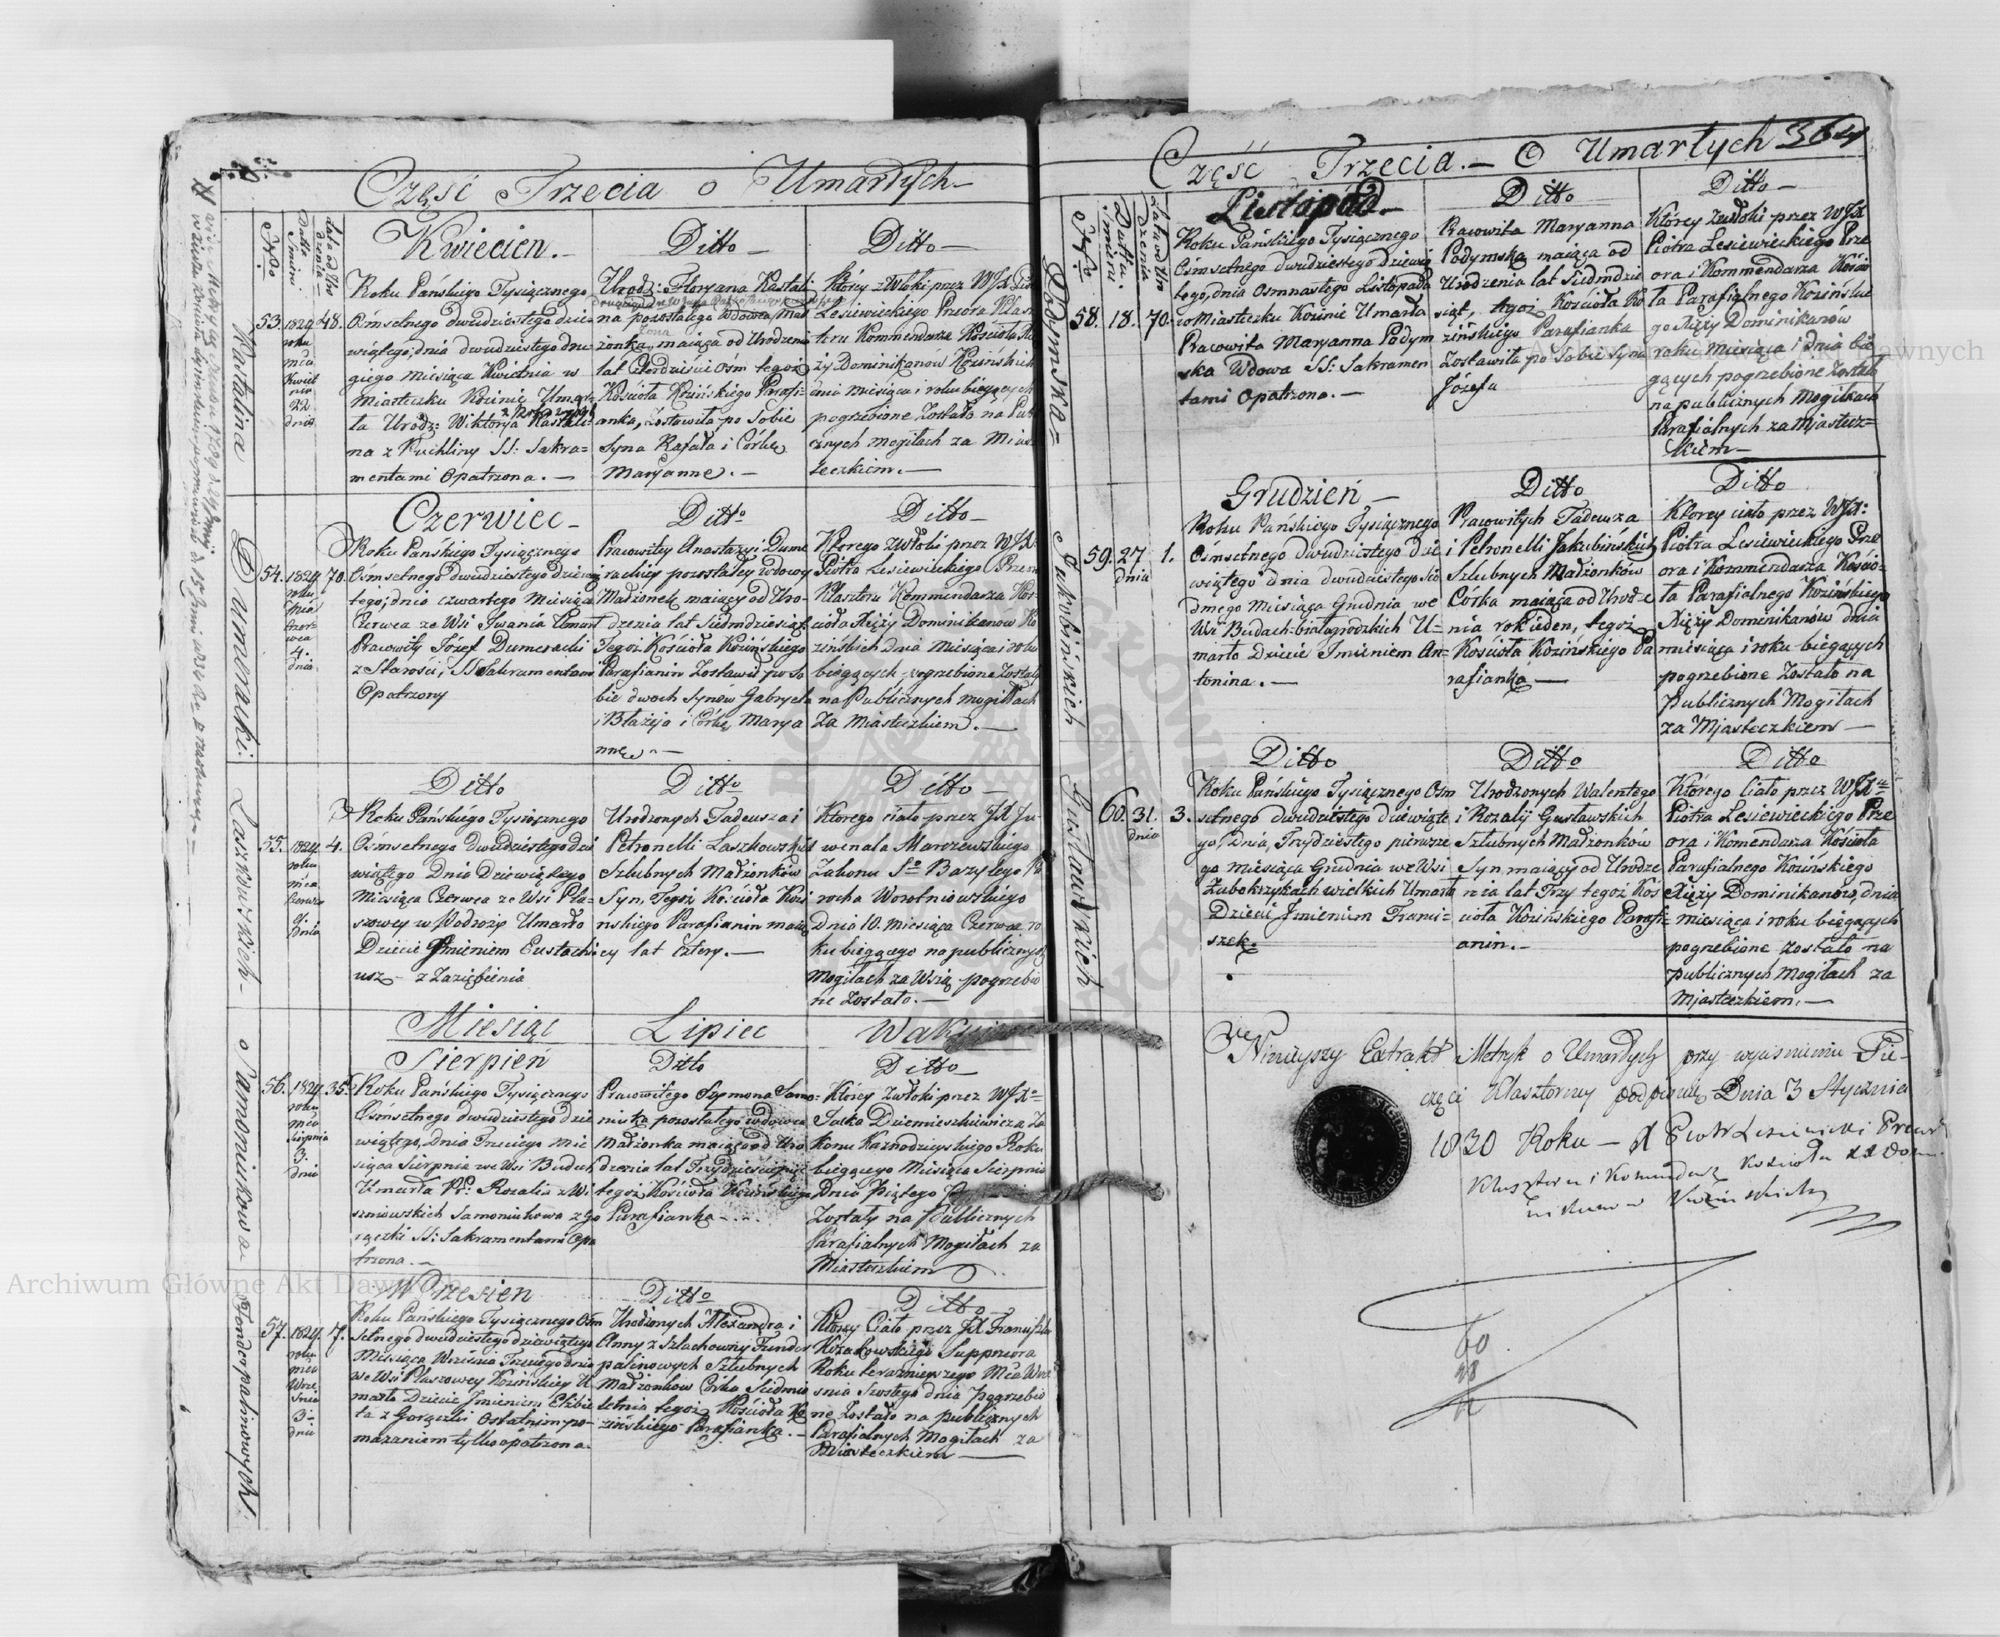 Część Trzecia o Umarłych
Nro
Datta Smierci
Lata od Uro dzenia
Kwiecien.
Ditto
Ditto
Kastalina
53.
1829
roku
mca
Kwiet
nia
22
dnia
48.
Roku Pańskiego Tysiącznego
Osmsetnego Dwudziestego dzie
wiątego, dnia dwudziestego dru
giego miesiąca Kwietnia w
Miasteczku Kozinie Umar
ła Urodz: Wiktorya Kastali
na z Puchliny SS: Sakra=
mentami Opatrzona. —
Urodz: Floryana Kastali
na pozostałego Wdowca, Mał
żonka, maiąca od Urodzenia
lat Czterdzieści Ośm tegoż
Kościoła Kozińskiego Parafi=
anka, Zostawiła po Sobie
Syna Rafała i Corkę
Maryannę. —
Którey zwłoki przez WJX Pio
Lesiewieckiego Przeora Klasz
toru Kommendarza Kościoła Xię
ży Dominikanow Kozińskich
dnia miesiąca i roku bieżących
pogrzebione Zostało na Publi
cznych mogiłach za Mias
teczkiem. —
Czerwiec
Ditto
Ditto
Dumeracki.
54.
1829
roku
mca
Czer
wca
4.
dnia
70.
Roku Pańskiego Tysiącznego
Osmsetnego dwudziestego dziewią
tego, dnia czwartego Miesiąca
Czerwca ze Wsi Iwania Umarł
Pracowity Józef Dumeracki
z Starości, SS Sakramentami
Opatrzony
Pracowitey Anastazyi Dume
rackiey pozostałey wdowy
Małżonek maiący od Uro=
dzenia lat Siedmdziesiąt
Tegoż Kościoła Kozińskiego
Parafianin Zostawił po So
bie dwoch Synów Gabryela
i Błażeja i Córkę Marya
nnę. —
Którego Zwłoki przez WJX
Piotra Lesiewieckiego Przeora
Klasztoru Kommendarza Koś
cioła Xięży Dominikanow Ko
zińskich dnia Miesiąca i roku
bieżących pogrzebione Zostało
na Publicznych mogiłach
Za Miasteczkiem. —
Ditto
Ditto
Ditto
Laszkowskich
55.
1829.
roku
mca
Czerwca
9.
dnia
4.
Roku Pańskiego Tysiącznego
Osmsetnego Dwudziestego dzie
wiątego Dnia Dziewiątego
Miesiąca Czerwca ze Wsi Pła=
szowey w Podróży Umarło
Dziecie Jmieniem Eustachi
usz — z Zaziębienia
Urodzonych Tadeusza i
Petronelli Laszkowskich
Szlubnych Małżonków
Syn, Tegoż Kościoła Kozi
nskiego Parafianin maią
cy lat Cztery. —
Którego ciało przez JX Ju
winala Marozewskiego
Zakonu So Bazylego
Dnia 10. Miesiąca Czerwca ro
ku bieżącego na publicznych
Mogiłach za Wsią pogrzebio
ne Zostało. —
Miesiąc
Lipiec
Sierpień
Ditto
Ditto
Samoniukowa
56.
1829.
roku
mca
Sierpnia
3.
dnia
35.
Roku Pańskiego Tysiącznego
Osmsetnego dwudziestego dzie
wiątego, dnia Trzeciego mie
siąca Sierpnia we Wsi Budach
Umarła Pr: Rozalia z Wi
szniewskich Samoniukowa z Go
rączki SS: Sakramentami Opa
trzona. —
Pracowitego Szymona Samo=
niuka pozostałego wdowca
Małżonka maiąca od Uro
dzenia lat Trzydzieści pięć
tegoż Kościoła Kozińskiego
Parafianka
Którey Zwłoki przez WJX
Konu Kaznodziejskiego Roku
bieżącego Miesiąca Sierpnia
Dnia Piątego
Zostały na Publicznych
Parafialnych Mogiłach za
Miasteczkiem
Wrzesień
Ditto
Ditto
Funderpalinowych
57.
1829.
roku
mca
Wrze
śnia
3
dnia
7.
Roku Pańskiego Tysiącznego Osm
setnego dwudziestego dziewiątego
Miesiąca Września Trzeciego dnia
we Wsi Płaszowey Kozińskiey U
marło Dziecie Jmieniem Elżbie
ta z Gorączki Ostatnim po=
mazaniem tylko opatrzona
Urodzonych Alexandra i
Anny z Szlachowny Funder
palinowych Szlubnych
Małżonkow Córka Siedmio
letnia tegoż Kościoła Ko
zińskiego Parafianka. —
Którey Ciało przez JX Franciszka
Kozakowskiego Suppriora
Roku teraznieyszego Mca Wrze
snia Szostego dnia Pogrzebio
ne Zostało na publicznych
Parafialnych Mogiłach za
Miasteczkiem —
Część Trzecia. — O Umarłych
364
Listopad. —
Ditto
Ditto —
Podymska
58.
18.
70.
Roku Pańskiego Tysiącznego
Osmsetnego dwudziestego dziewią
tego, dnia Osmnastego Listopada
w Miasteczku Kozinie Umarła
Pracowita Maryanna Podym
ska Wdowa SS: Sakramen
tami Opatrzona. —
Pracowita Maryanna
Podymska maiąca od
Urodzenia lat Siedmdzie
siąt, tegoż Kościoła Ko
zińskiego Parafianka
Zostawiła po Sobie Syna
Józefa
Którey Zwłoki przez WJX
Piotra Lesiewieckiego Prze
ora i Kommendarza Kościo
ła Parafialnego Kozińskie
go Xięży Dominikanow
roku miesiąca i dnia bie
żących pogrzebione Zostało
na publicznych Mogiłkach
Parafialnych za Miastecz=
kiem —
Grudzień —
Ditto
Ditto
Jakubińskich
59.
27
dnia
1.
Roku Pańskiego Tysiącznego
Osmsetnego dwudziestego dzie
wiątego dnia dwudziestego Sie
dmego Miesiąca Grudnia we
Wsi Budach-białogrodzkich U=
marło Dziecie Jmieniem An=
tonina. —
Pracowitych Tadeusza
i Petronelli Jakubińskich
Szlubnych Małżonków
Córka maiąca od Urodze
nia rok ieden, tegoż
Kościoła Kozińskiego Pa
rafianka —
Którey ciało przez WJX:
Piotra Lesiewieckiego Prze
ora i Kommendarza Kościo=
ła Parafialnego Kozińskiego
Xięży Dominikanów dnia
miesiąca i roku bieżących
pogrzebione Zostało na
Publicznych Mogiłach
za Miasteczkiem —
Ditto
Ditto
Ditto
Gusławskich
60.
31.
dnia
3.
Roku Pańskiego Tysiącznego Osm
setnego dwudziestego dziewiąte
go, Dnia, Trzydziestego pierwsze
go miesiąca Grudnia we Wsi
Zubokrzykach wielkich Umarło
Dziecie Jmieniem Franci=
szek.
Urodzonych Walentego
i Rozalij Gusławskich
Szlubnych Małżonków
Syn maiący od Urodze
nia lat Trzy tegoż Koś
cioła Kozińskiego Parafi=
anin. —
Którego Ciało przez WJX
Piotra Lesiewieckiego Prze
ora i Komendarza Kościoła
Parafialnego Kozińskiego
Xięży Dominikanow, dnia
miesiąca i roku bieżących
pogrzebione zostało na
publicznych mogiłach za
Miasteczkiem. —
Ninieyszy Extrakt Metryk o Umarłych przy wyciśnieniu Pie=
częci Klasztorney podpisuię Dnia 3 Stycznia
1830 Roku — X Piotr Lesiewiecki Przeor
Klasztoru i Komendarz Kościoła XX Domi
nikanow Kozińskich
60
Archiwum Główne Akt Dawnych
Archiwum Główne Akt Dawnych